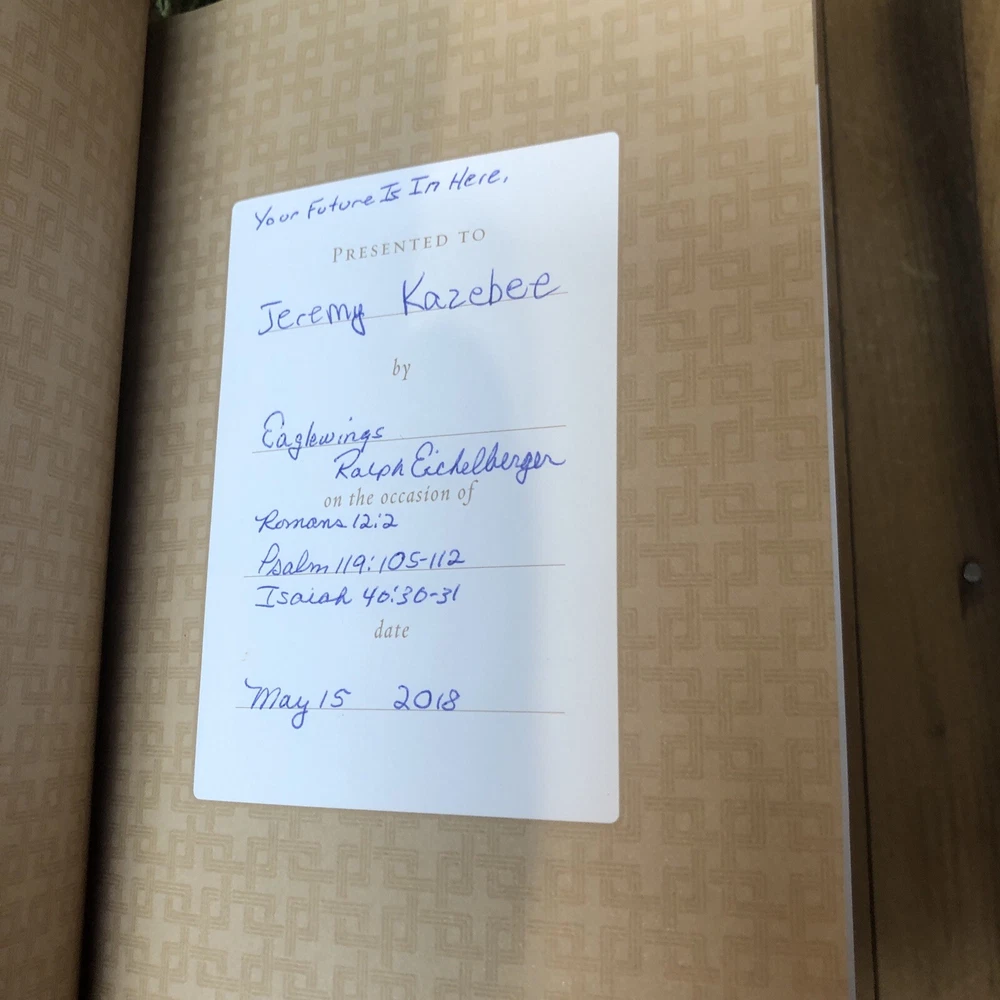 Your Future Is In Here.
PRESENTED TO
Jeremy Kazebee
by
Eaglewings
Ralph Eichelberger
on the occasion of
Romans 12:2
Psalm 119:105-112
Isaiah 40:30-31
date
May 15 2018